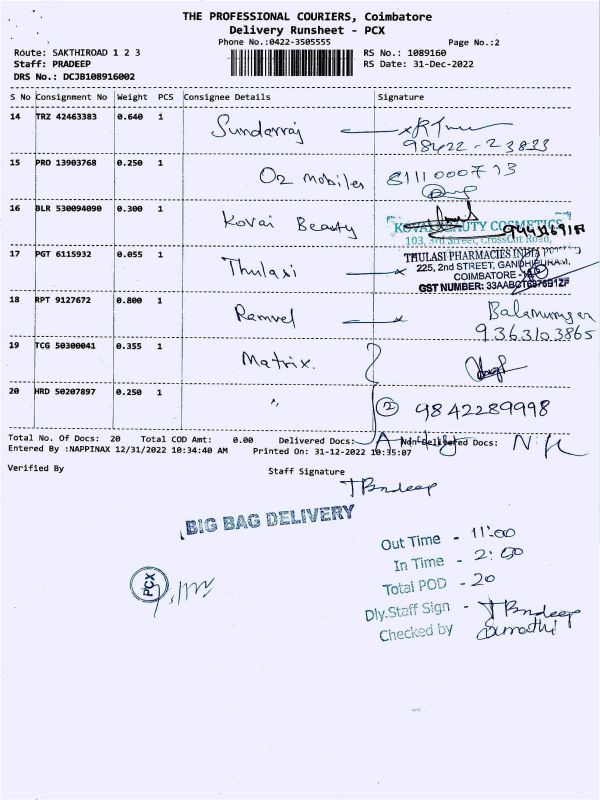 THE PROFESSIONAL COURIERS, Coimbatore
Delivery Runsheet - PCX
Phone No.:0422-3505555 Page No.:2
Route: SAKTHIROAD 1 2 3 RS No.: 1089160
Staff: PRADEEP RS Date: 31-Dec-2022
DRS No.: DCJB108916002
S No Consignment No Weight PCS Consignee Details Signature
14 TRZ 42463383 0.640 1 Sundarraj
98422-23823
15 PRO 13903768 0.250 1 O2 mobiles 8111000713
16 BLR 530094090 0.300 1 Kovai Beauty
KOVAI BEAUTY COSMETICS
103, 3rd Street, CrossCut Road,
17 PGT 6115932 0.055 1 Thulasi
THULASI PHARMACIES INDIA
225, 2nd STREET, GANDHIPURAM,
COIMBATORE
GST NUMBER:
18 RPT 9127672 0.800 1 Ramvel Balamurugan
9363103865
19 TCG 50300041 0.355 1 Matrix.
20 HRD 50207897 0.250 1 " 2 9842289998
Total No. Of Docs: 20 Total COD Amt: 0.00 Delivered Docs: Non Delivered Docs: Nil
Entered By :NAPPINAX 12/31/2022 10:34:40 AM Printed On: 31-12-2022 10:35:07
Verified By Staff Signature
BIG BAG DELIVERY
Out Time - 11:00
In Time -
Total POD - 20
PCX
Dly.Staff Sign -
Checked by